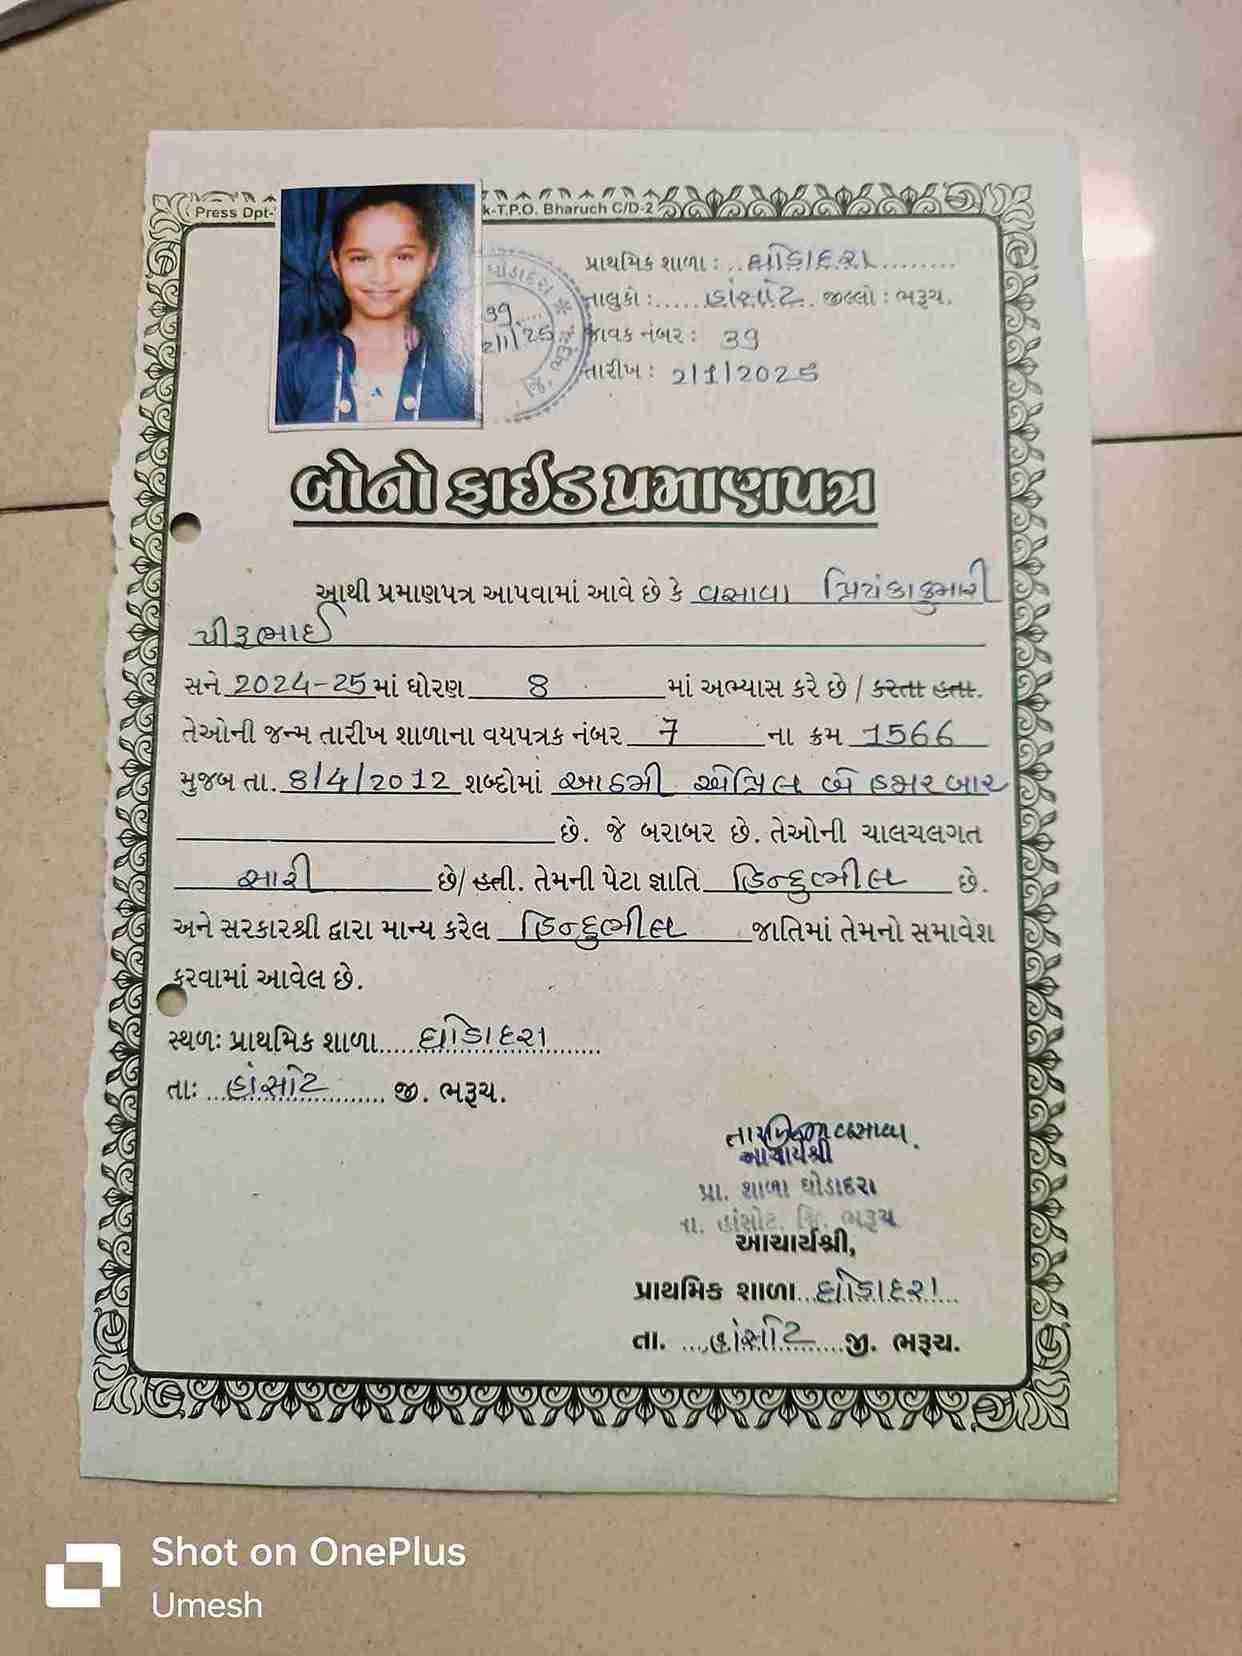 Press Dpt-
k-T.P.O. Bharuch C/D-2
ઘોડાદરા
39
2/1/25
પ્રાથમિક શાળા : ..ઘોડાદરા........
તાલુકો :......હાંસોટ.. જીલ્લો : ભરૂચ.
જાવક નંબર : 39
તારીખ : 2/1/2025
બોનોફાઈડ પ્રમાણપત્ર
આથી પ્રમાણપત્ર આપવામાં આવે છે કે વસાવા પ્રિયંકાકુમારી
સને 2024-25 માં ધોરણ 8 માં અભ્યાસ કરે છે / કરતા હતા.
તેઓની જન્મ તારીખ શાળાના વયપત્રક નંબર 7 ના ક્રમ 1566
મુજબ તા. 8/4/2012 શબ્દોમાં આઠમી એપ્રિલ બે હજાર બાર
છે. જે બરાબર છે. તેઓની ચાલચલગત
સારી છે/ હતી. તેમની પેટા જ્ઞાતિ હિન્દુભીલ છે.
અને સરકારશ્રી દ્વારા માન્ય કરેલ હિન્દુભીલ જાતિમાં તેમનો સમાવેશ
કરવામાં આવેલ છે.
સ્થળઃ પ્રાથમિક શાળા....ઘોડાદરા........
તાઃ ...હાંસોટ......... જી. ભરૂચ.
આચાર્યશ્રી
પ્રા. શાળા ઘોડાદરા
તા. હાંસોટ, જિ. ભરૂચ
આચાર્યશ્રી,
પ્રાથમિક શાળા...ઘોડાદરા...
તા. ...હાંસોટ......જી. ભરૂચ.
Shot on OnePlus
Umesh